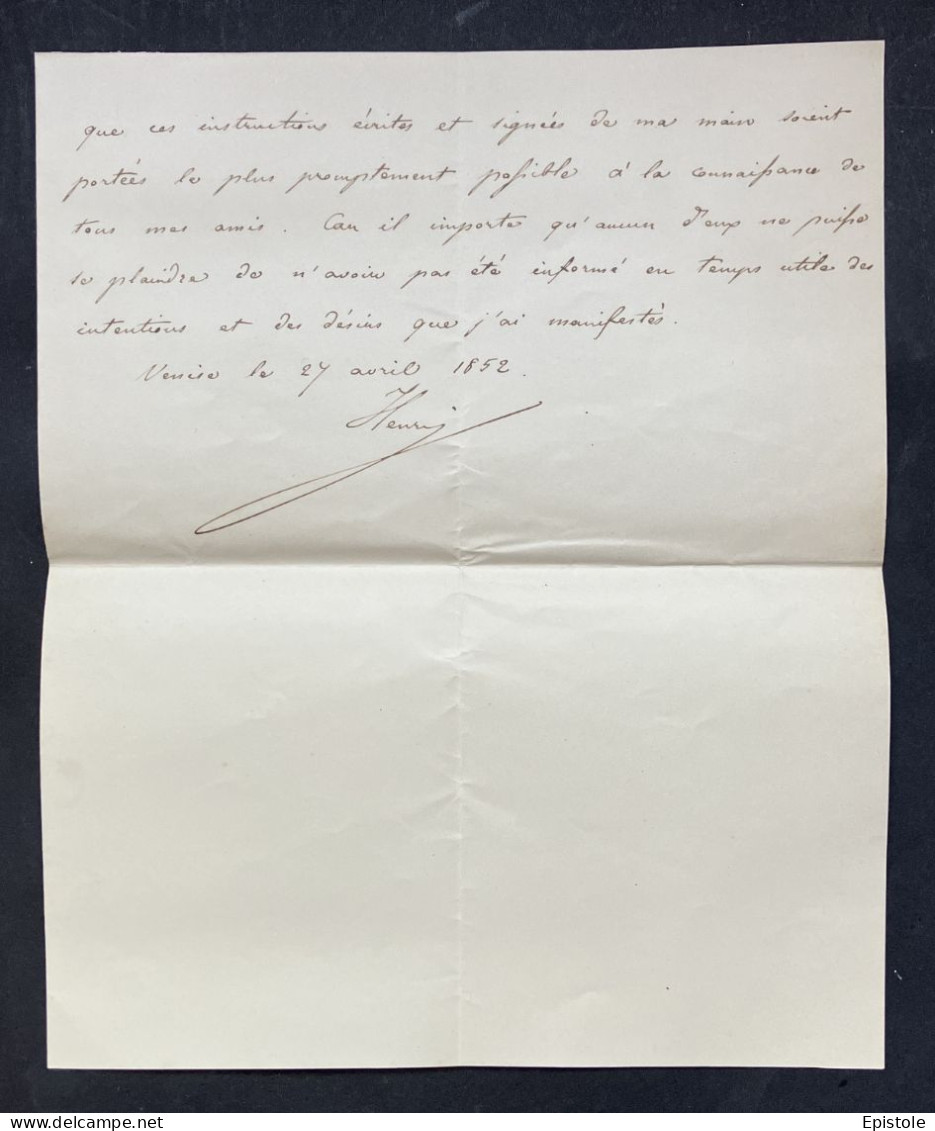 que ces instructions écrites et signées de ma main soient
portées le plus promptement possible à la connaissance de
tous mes amis. Car il importe qu'aucun d'eux ne puisse
se plaindre de n'avoir pas été informé en temps utile des
intentions et des désirs que j'ai manifestés.
Venise le 27 avril 1852.
Henri
delcampe.net
Epistole